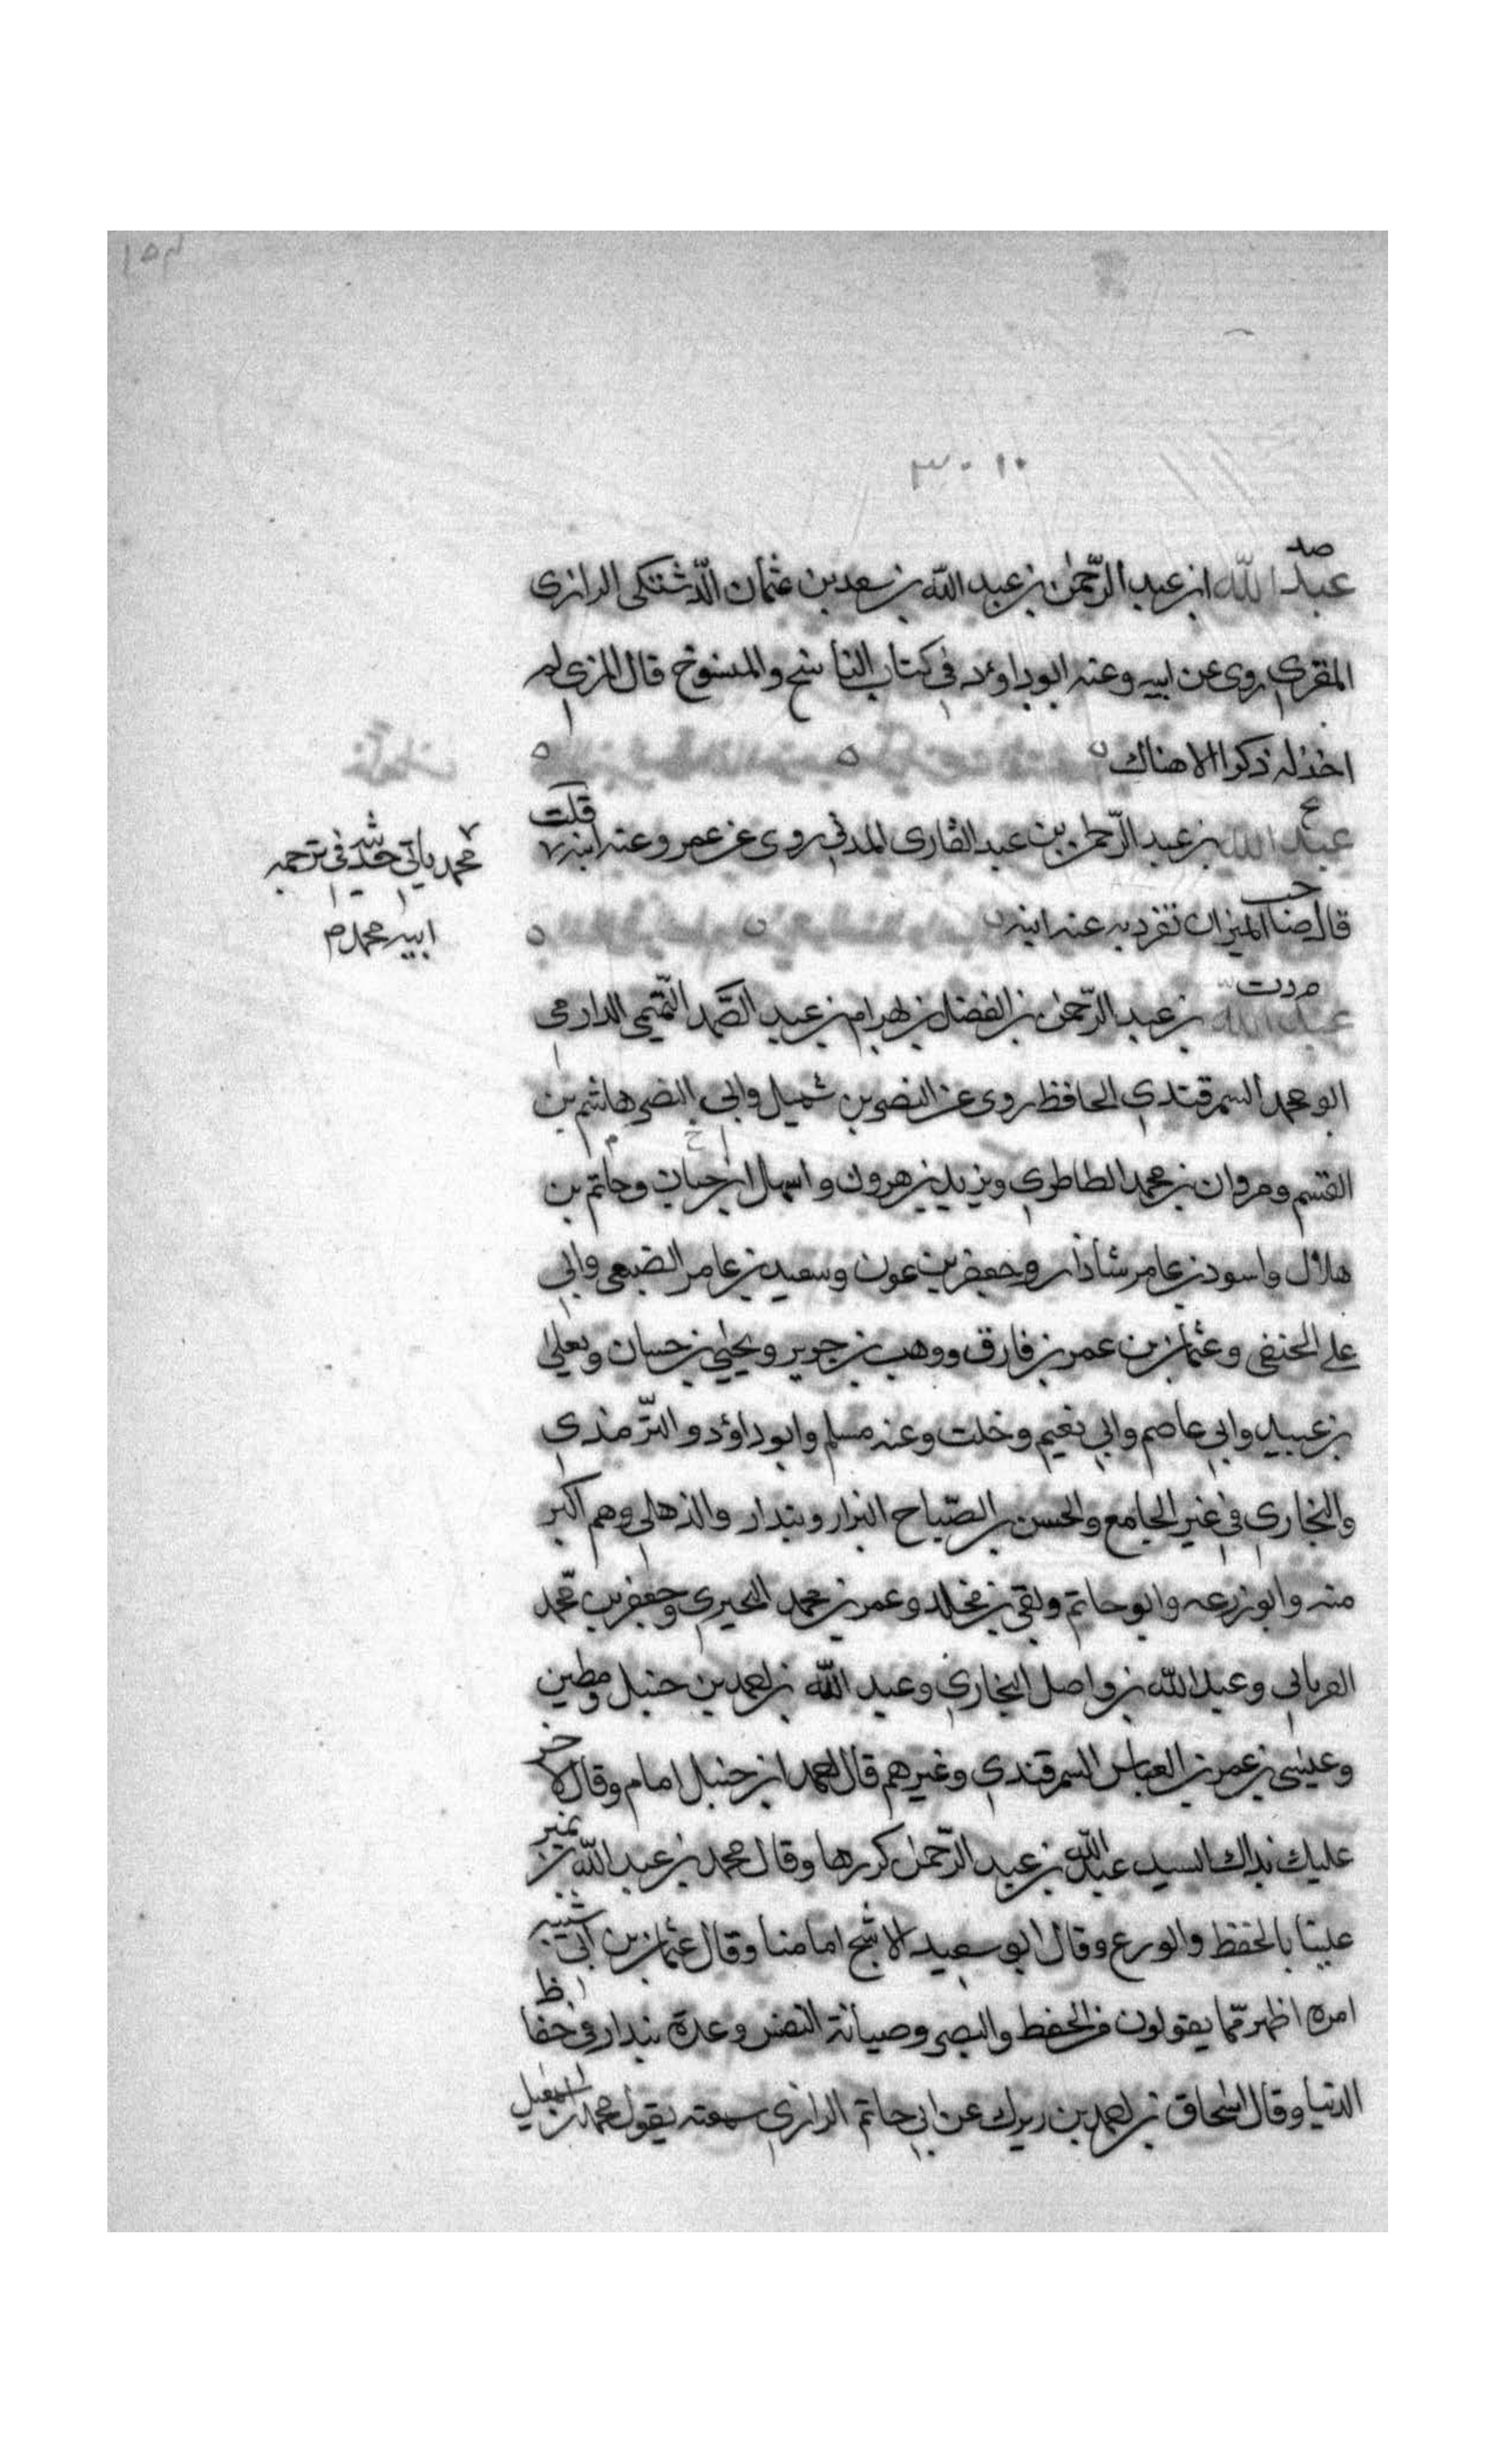 ١٥٣
٣٠١٠
صد
عبد الله ابن عبد الرّحمٰن بن عبد الله بن سعد بن عثمان الدّشتكى الرازى
المقرى روى عن ابيه وعنه ابوداود فى كتاب الناسخ والمنسوخ قال المزى لم
اخذ له ذكرا الا هناك
عبد الله بن عبد الرّحمن بن عبد القارى المدنى روى عن عمر وعنه ابنه قلت
محمد ياتى حديثه فى ترجمه
ابيه محمد م
قال صا الميزان تفرد به عنه ابنه
م د ت
عبد الله بن عبد الرّحمٰن بن الفضل بن بهرام بن عبد الصّمد التّميمى الدارمى
ابو محمد السمرقندى الحافظ روى عن النضر بن شميل وابى النضر هاشم بن
القسم ومروان بن محمد الطاطرى ويزيد بن هرون و ابن حبان وحاتم بن
هلال واسود بن عامر شاذان وجعفر بن عون وسعيد بن عامر الضبعى وابى
على الحنفى وعثمان بن عمر بن فارق ووهب بن جرير ويحيٰى بن حسان ويعلى
بن عبيد وابى عاصم وابى نعيم وخلت وعنه مسلم وابوداؤد والتّرمذى
والبخارى فى غير الجامع والحسن بن الصّباح البزار وبندار والذهلى وهم اكبر
منه وابوزرعه وابوحاتم وبقى بن مخلد وعمر بن محمد البحيرى وجعفر بن محمّد
الفريابى وعبد الله بن واصل البخارى وعبد الله بن احمد بن حنبل ومطين
وعيسٰى بن عمر بن العباس السمرقندى وغيرهم قال احمد ابن حنبل امام وقال لاخر
عليك بذاك السيد عبد الله بن عبد الرّحمن كررها وقال محمد بن عبد الله بن نمير
علينا بالحفظ والورع وقال ابو سعيد الاشج امامنا وقال عثمان بن ابى شيبه
امره اظهر ممّا يقولون من الحفظ والبصر وصيانة النفس وعدة بندار فى حفاظ
الدنيا وقال اسحاق بن احمد بن زيرك عن ابى حاتم الرازى سمعته يقول محمد بن اسمعيل